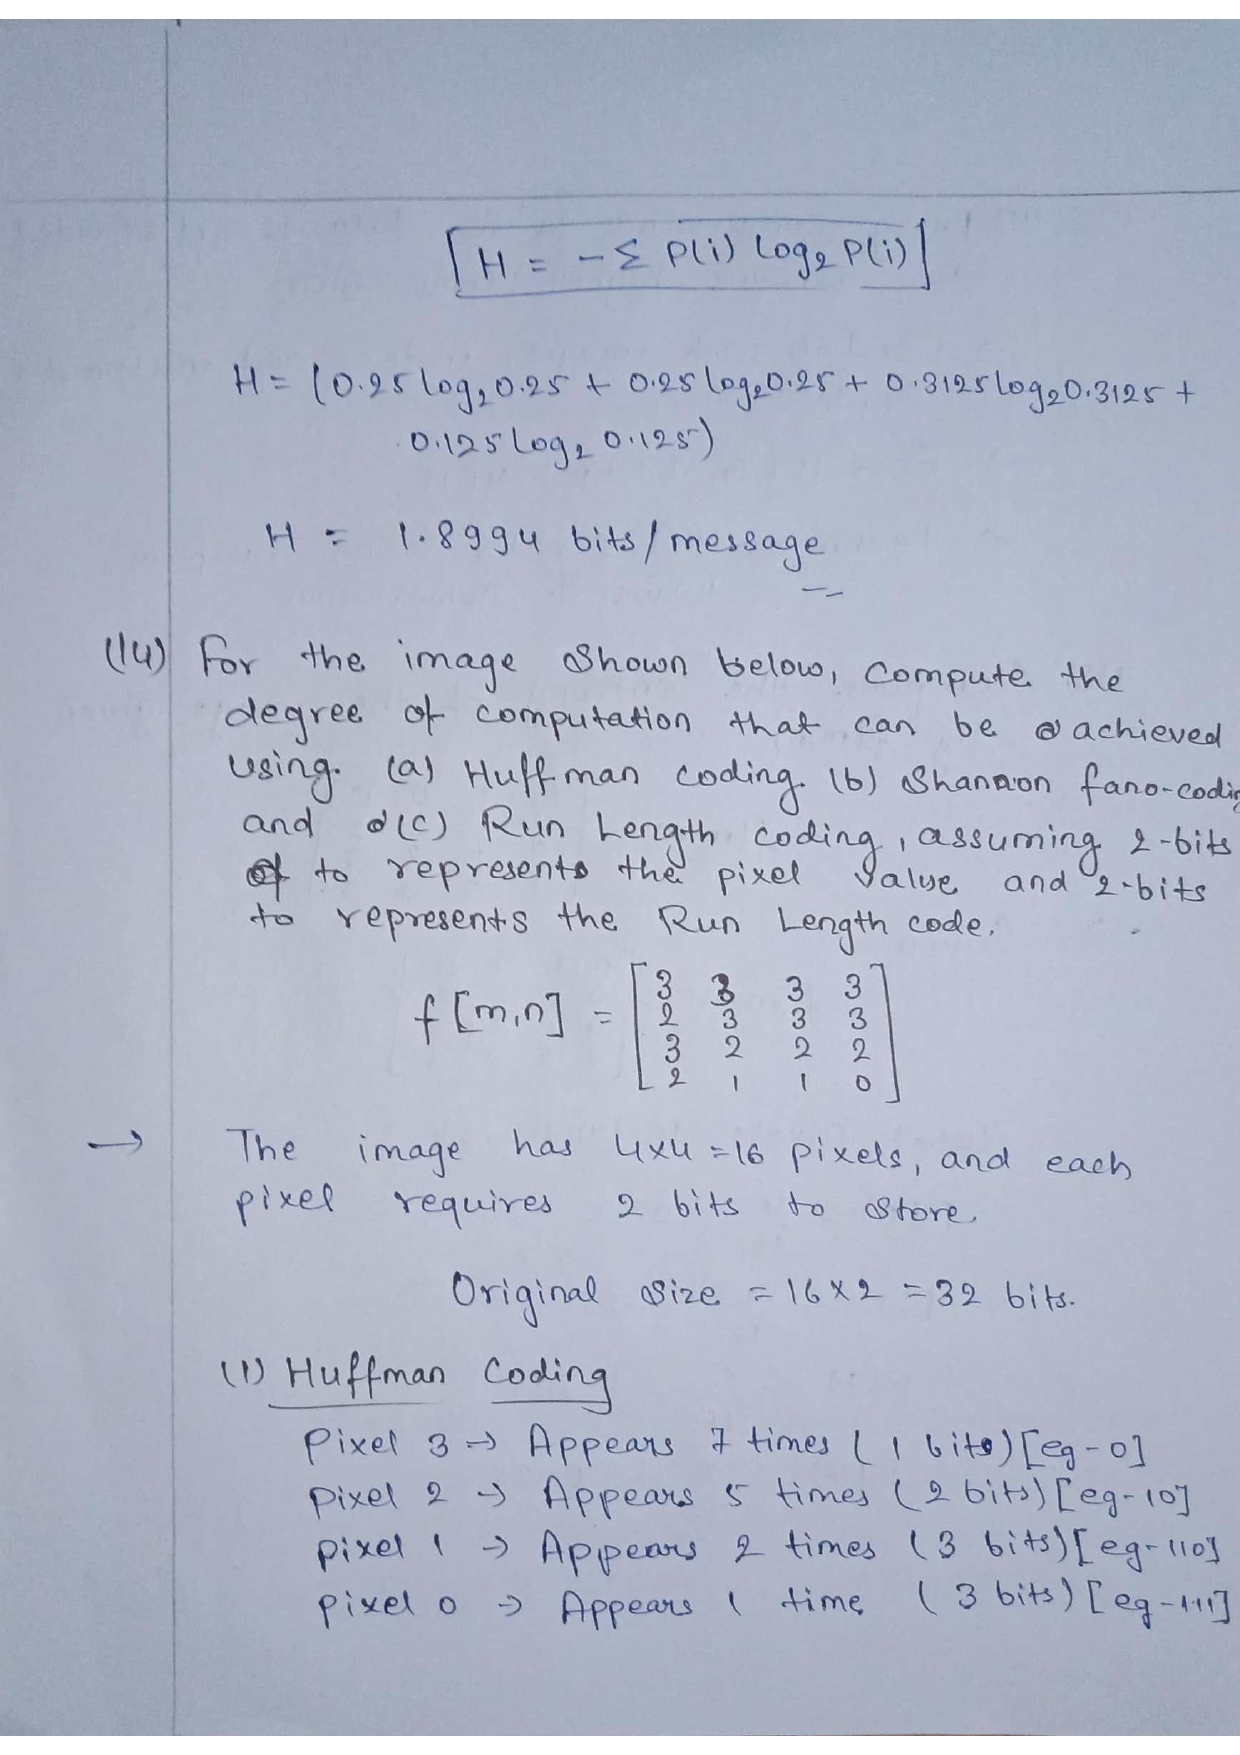 [H = -Σ P(i) log₂ P(i)]
H = (0.25 log₂ 0.25 + 0.25 log₂ 0.25 + 0.3125 log₂ 0.3125 +
0.125 log₂ 0.125)
H = 1.8994 bits/message
(14) For the image shown below, compute the
degree of computation that can be achieved
using (a) Huffman coding (b) Shannon fano-coding
and (c) Run Length coding, assuming 2-bits
to represents the pixel value and 2-bits
to represents the Run Length code.
f[m,n] = [3 3 3 3
2 3 3 3
3 2 2 2
2 1 1 0]
→ The image has 4x4 = 16 pixels, and each
pixel requires 2 bits to store.
Original size = 16 x 2 = 32 bits.
(1) Huffman Coding
Pixel 3 → Appears 7 times (1 bits) [eg - 0]
pixel 2 → Appears 5 times (2 bits) [eg - 10]
pixel 1 → Appears 2 times (3 bits) [eg - 110]
pixel 0 → Appears 1 time (3 bits) [eg - 111]